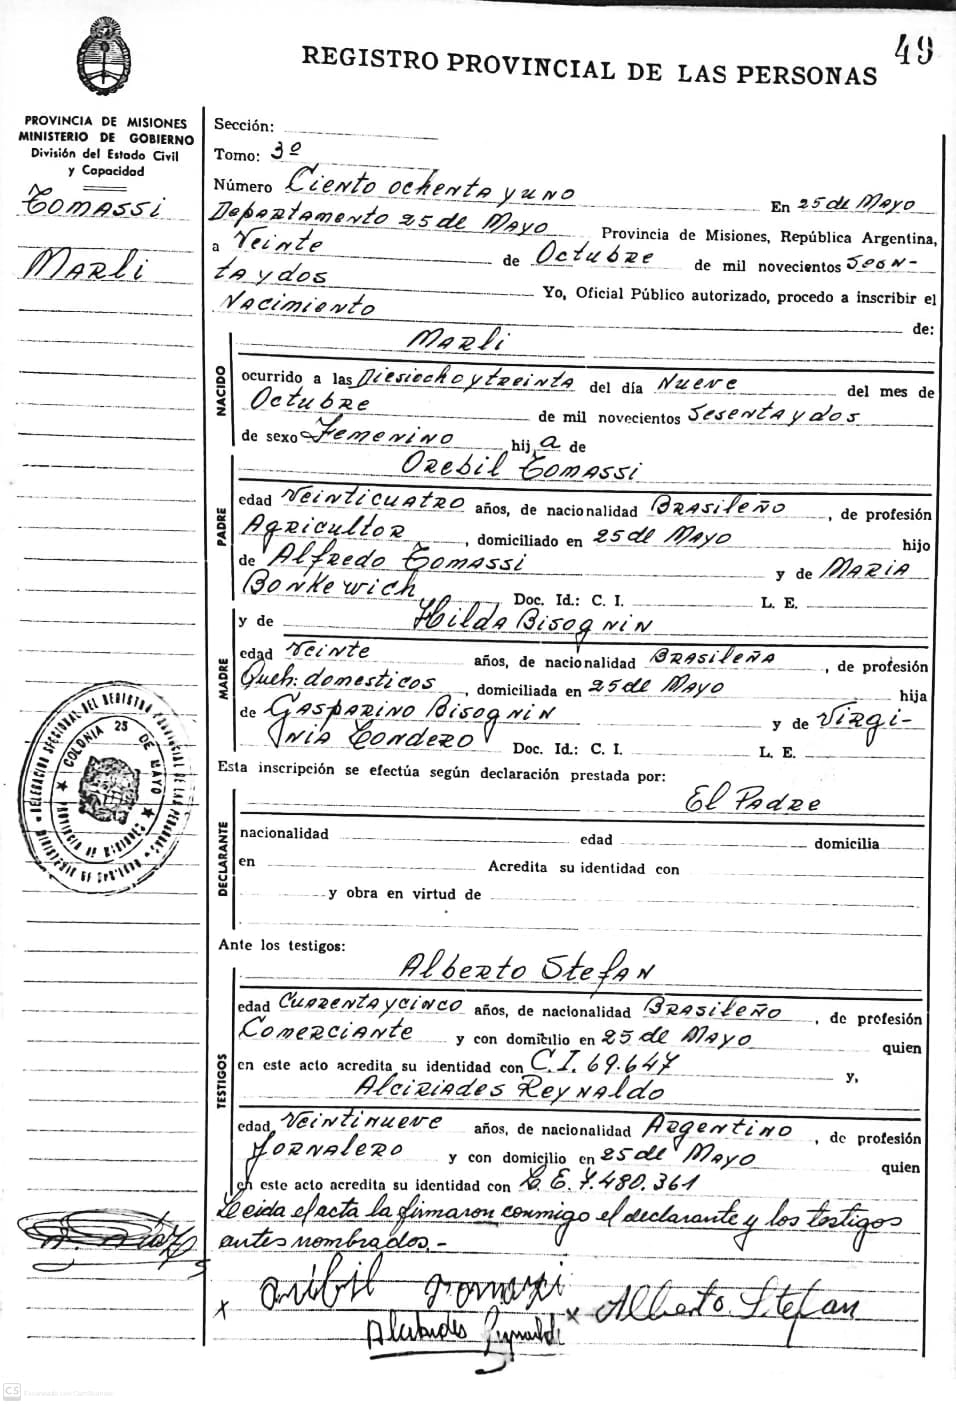 49
REGISTRO PROVINCIAL DE LAS PERSONAS
PROVINCIA DE MISIONES
MINISTERIO DE GOBIERNO
División del Estado Civil
y Capacidad
Tomassi
Marli
Sección:
Tomo: 3º
Número Ciento ochenta y uno En 25 de Mayo
Departamento 25 de Mayo Provincia de Misiones, República Argentina,
a Veinte de Octubre de mil novecientos Sesen-
ta y dos Yo, Oficial Público autorizado, procedo a inscribir el
Nacimiento de:
Marli
NACIDO
ocurrido a las Diesiocho y treinta del día Nueve del mes de
Octubre de mil novecientos Sesenta y dos
de sexo Femenino hija de
Orebil Tomassi
PADRE
edad Veinticuatro años, de nacionalidad Brasileño, de profesión
Agricultor, domiciliado en 25 de Mayo hijo
de Alfredo Tomassi y de Maria
Bonkewich Doc. Id.: C. I. L. E.
y de Hilda Bisognin
MADRE
edad Veinte años, de nacionalidad Brasileña, de profesión
Queh: domesticos, domiciliada en 25 de Mayo hija
de Gasparino Bisognin y de Virgi-
nia Tondero Doc. Id.: C. I. L. E.
Esta inscripción se efectúa según declaración prestada por:
El Padre
DECLARANTE
nacionalidad edad domicilia
en Acredita su identidad con
y obra en virtud de
Ante los testigos:
Alberto Stefan
TESTIGOS
edad Cuarenta y cinco años, de nacionalidad Brasileño, de profesión
Comerciante y con domicilio en 25 de Mayo quien
en este acto acredita su identidad con C.I. 69.647 y,
Alciriades Reynaldo
edad Veintinueve años, de nacionalidad Argentino, de profesión
Jornalero y con domicilio en 25 de Mayo quien
en este acto acredita su identidad con L.E. 7.480.361
Leida el acta la firmaron conmigo el declarante y los testigos
antes nombrados.-
COLONIA 25 DE MAYO
x x Alberto Stefan
CS Escaneado con CamScanner